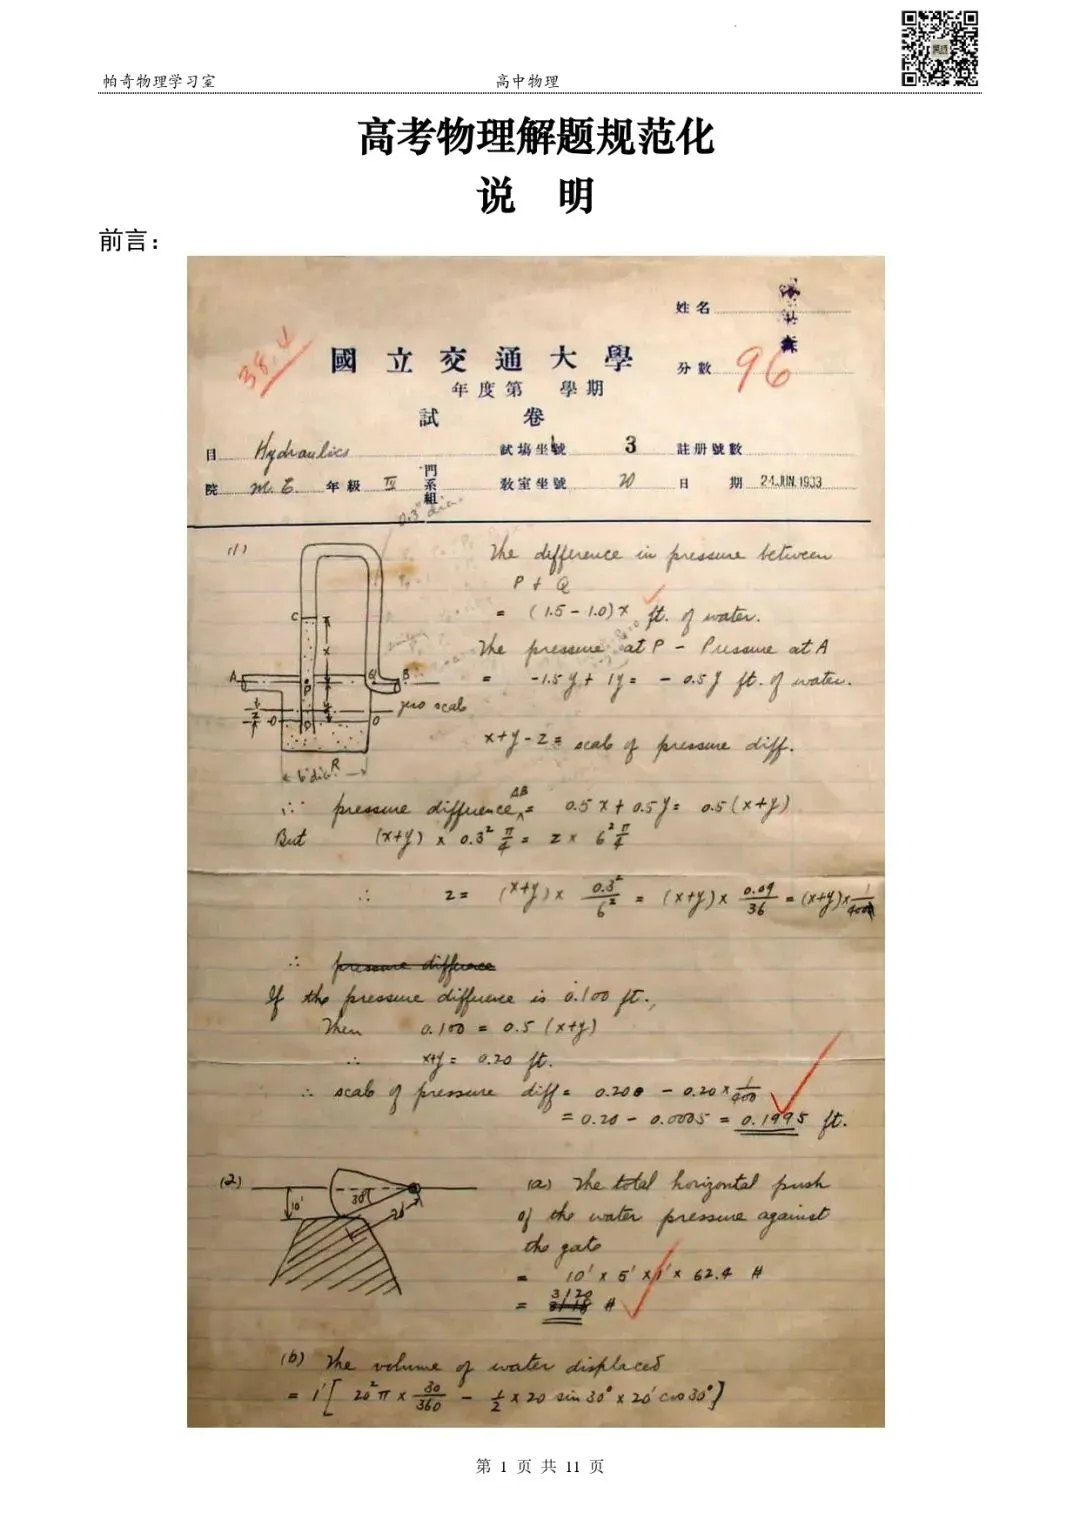 帕奇物理学习室 高中物理
高考物理解题规范化
说 明
前言：
姓名
38.4
國立交通大學
分數 96
年度第 學期
試 卷
目 Hydraulics 試場坐號 3 註册號數
院 M.E. 年級 IV 門系組 教室坐號 20 日期 24.JUN.1933
0.3" dia.
(1)
The difference in pressure between
P + Q
= (1.5 - 1.0)x ft. of water.
The pressure at P - Pressure at A
= -1.5y + 1y = -0.5y ft. of water.
C
x
A P Q B
zero scale
z O D O
6" dia. R
x+y-z = scale of pressure diff.
∴ pressure difference AB = 0.5x + 0.5y = 0.5(x+y)
But (x+y) x 0.3² π/4 = z x 6² π/4
∴ z = (x+y) x 0.3²/6² = (x+y) x 0.09/36 = (x+y) x 1/400
∴ pressure difference
If the pressure difference is 0.100 ft.,
Then 0.100 = 0.5 (x+y)
∴ x+y = 0.20 ft.
∴ scale of pressure diff = 0.200 - 0.20 x 1/400
= 0.20 - 0.0005 = 0.1995 ft.
(2)
10' 30° 20'
(a) The total horizontal push
of the water pressure against
the gate
= 10' x 5' x 1' x 62.4 #
= 3120 #
(b) The volume of water displaced
= 1' [ 20² π x 30/360 - 1/2 x 20 sin 30° x 20' cos 30° ]
第 1 页 共 11 页